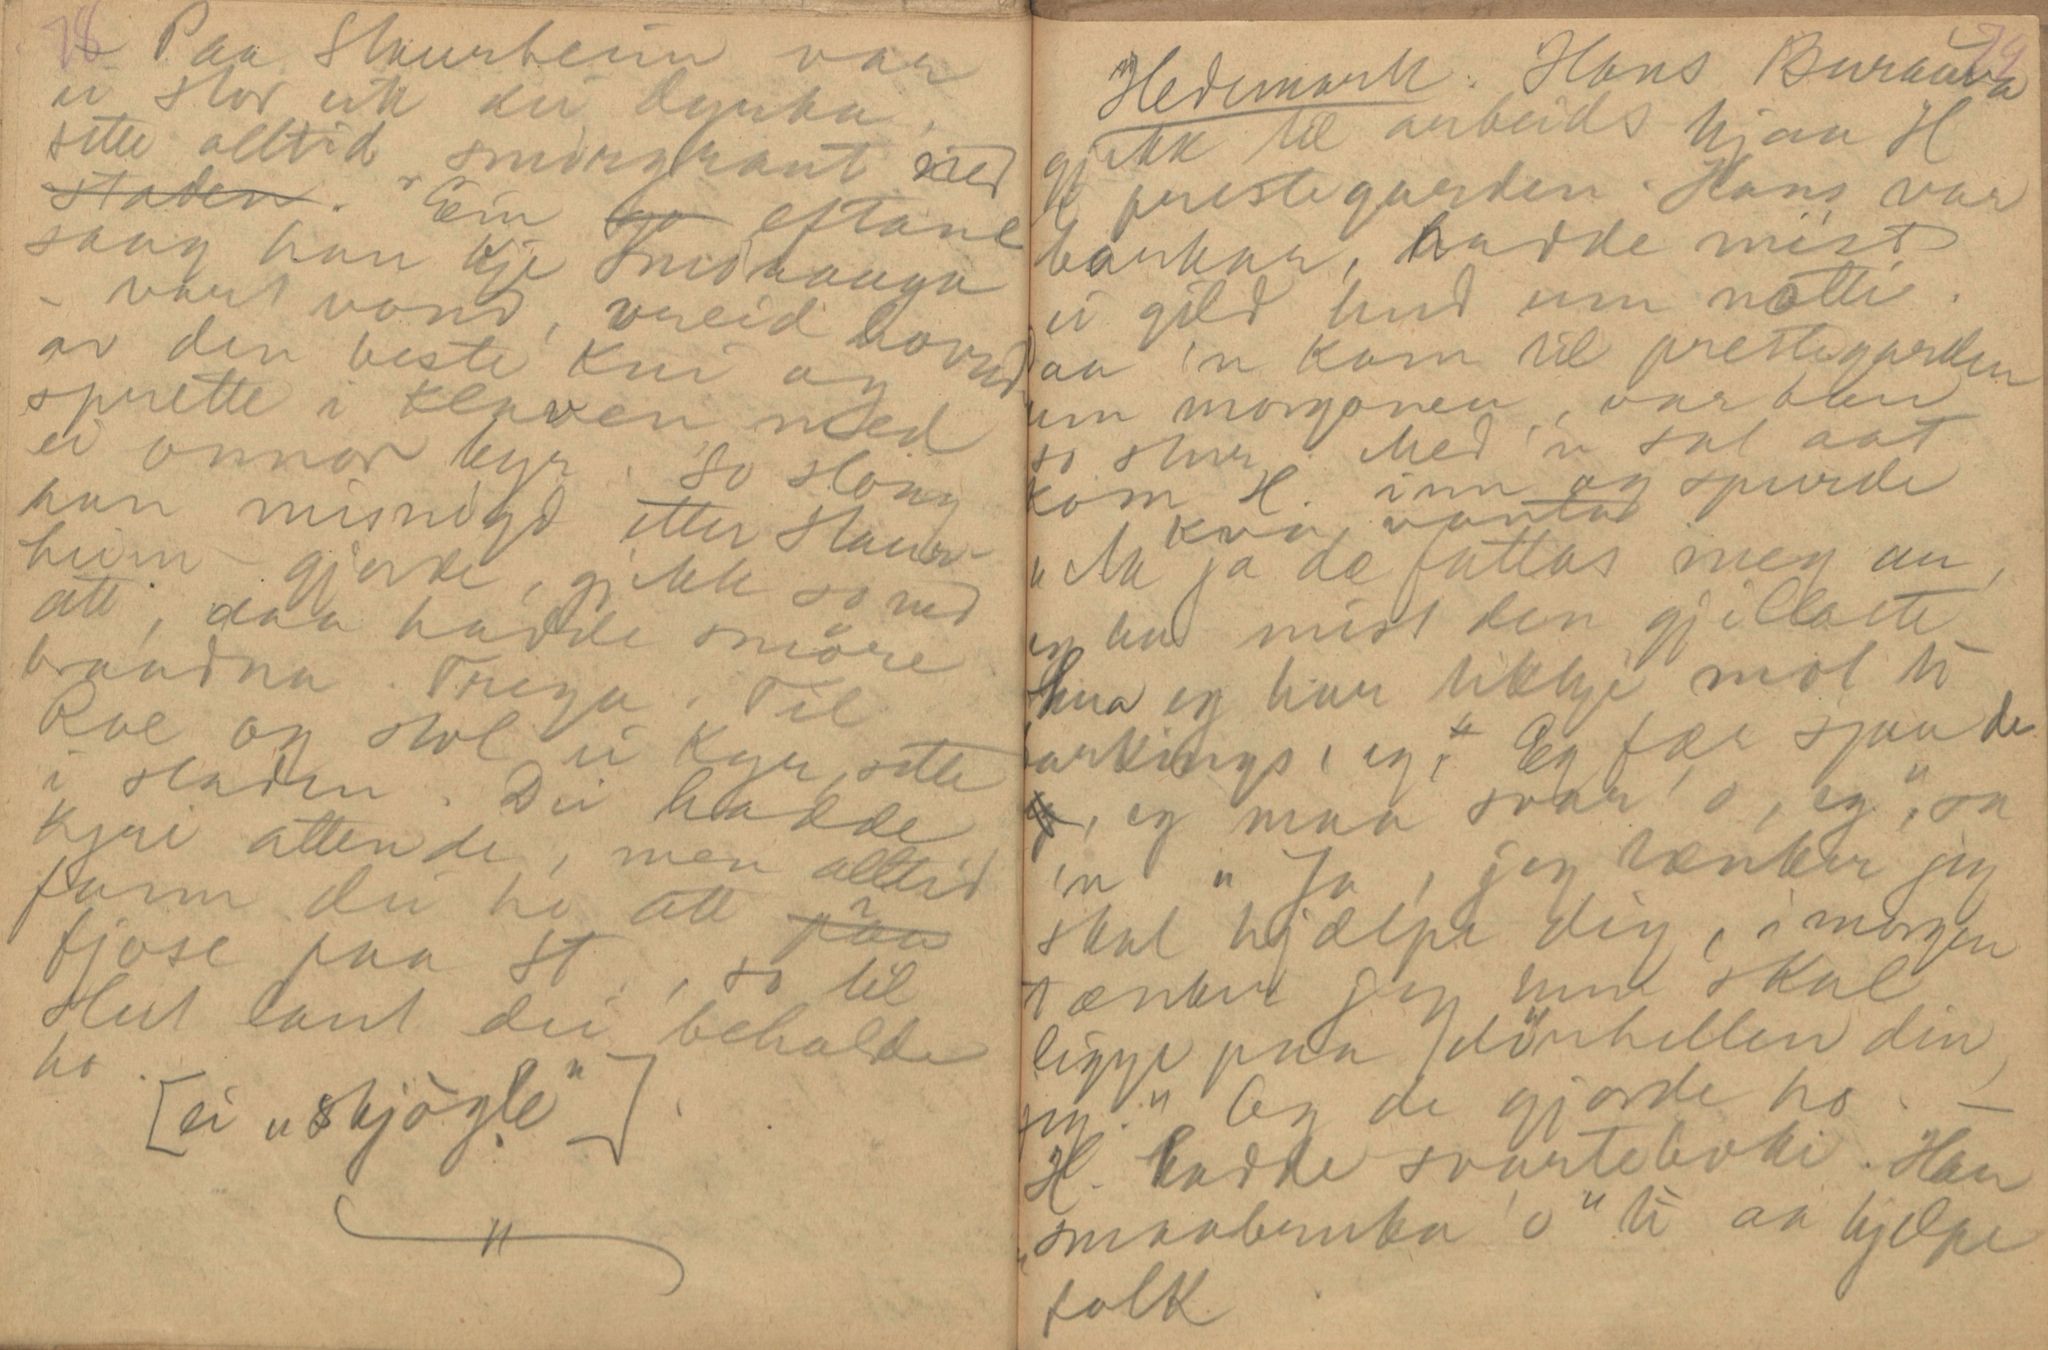 78
Paa Staurheim var
ei stor eik dei dyrka,
sette alltid smörgraut ned
staden. Ein go eftane
saag han kje Smidhauga
- vart vond, vreid hovud
av den beste kui og
sprette i klaven med
ei onnor kyr. So slong
han misnögd etter Staur-
heim - gjorde, gjekk so ned
att, daa hadde smöre
braadna. Trega. Til
Rue og stol ei kyr, sette
i staden. Dei hadde
kyri attende, men alltid
funn dei ho att paa
fjose paa St., so til
slut laut dei behalde
ho.
[ei "skjögle"]
79
"Hedemark. Hans Buraava
gjekk til arbeids hjaa H
prestegarden. Hans var
barkar, hadde mist
ei gild hud um notti.
Daa 'n kom til prestegarden
um morgonen, var han
so stur. Med 'n sat aat
kom H. inn og spurde
kva vanta
"Aa ja dæ fattas meg au,
eg ha mist den gjillaste
hua eg har tikkje mot ti
barkings, eg," Eg fær sjaa de
, eg maa svar' o, eg", sa
'n "Ja, jeg tænker jeg
skal hjælpe dig, i morgen
tænker jeg hun skal
ligge paa dörhellen din,
jeg." Og de gjorde ho. -
H. hadde svarteboki. Han
"smaabruka 'o" ti aa hjelpe
folk.